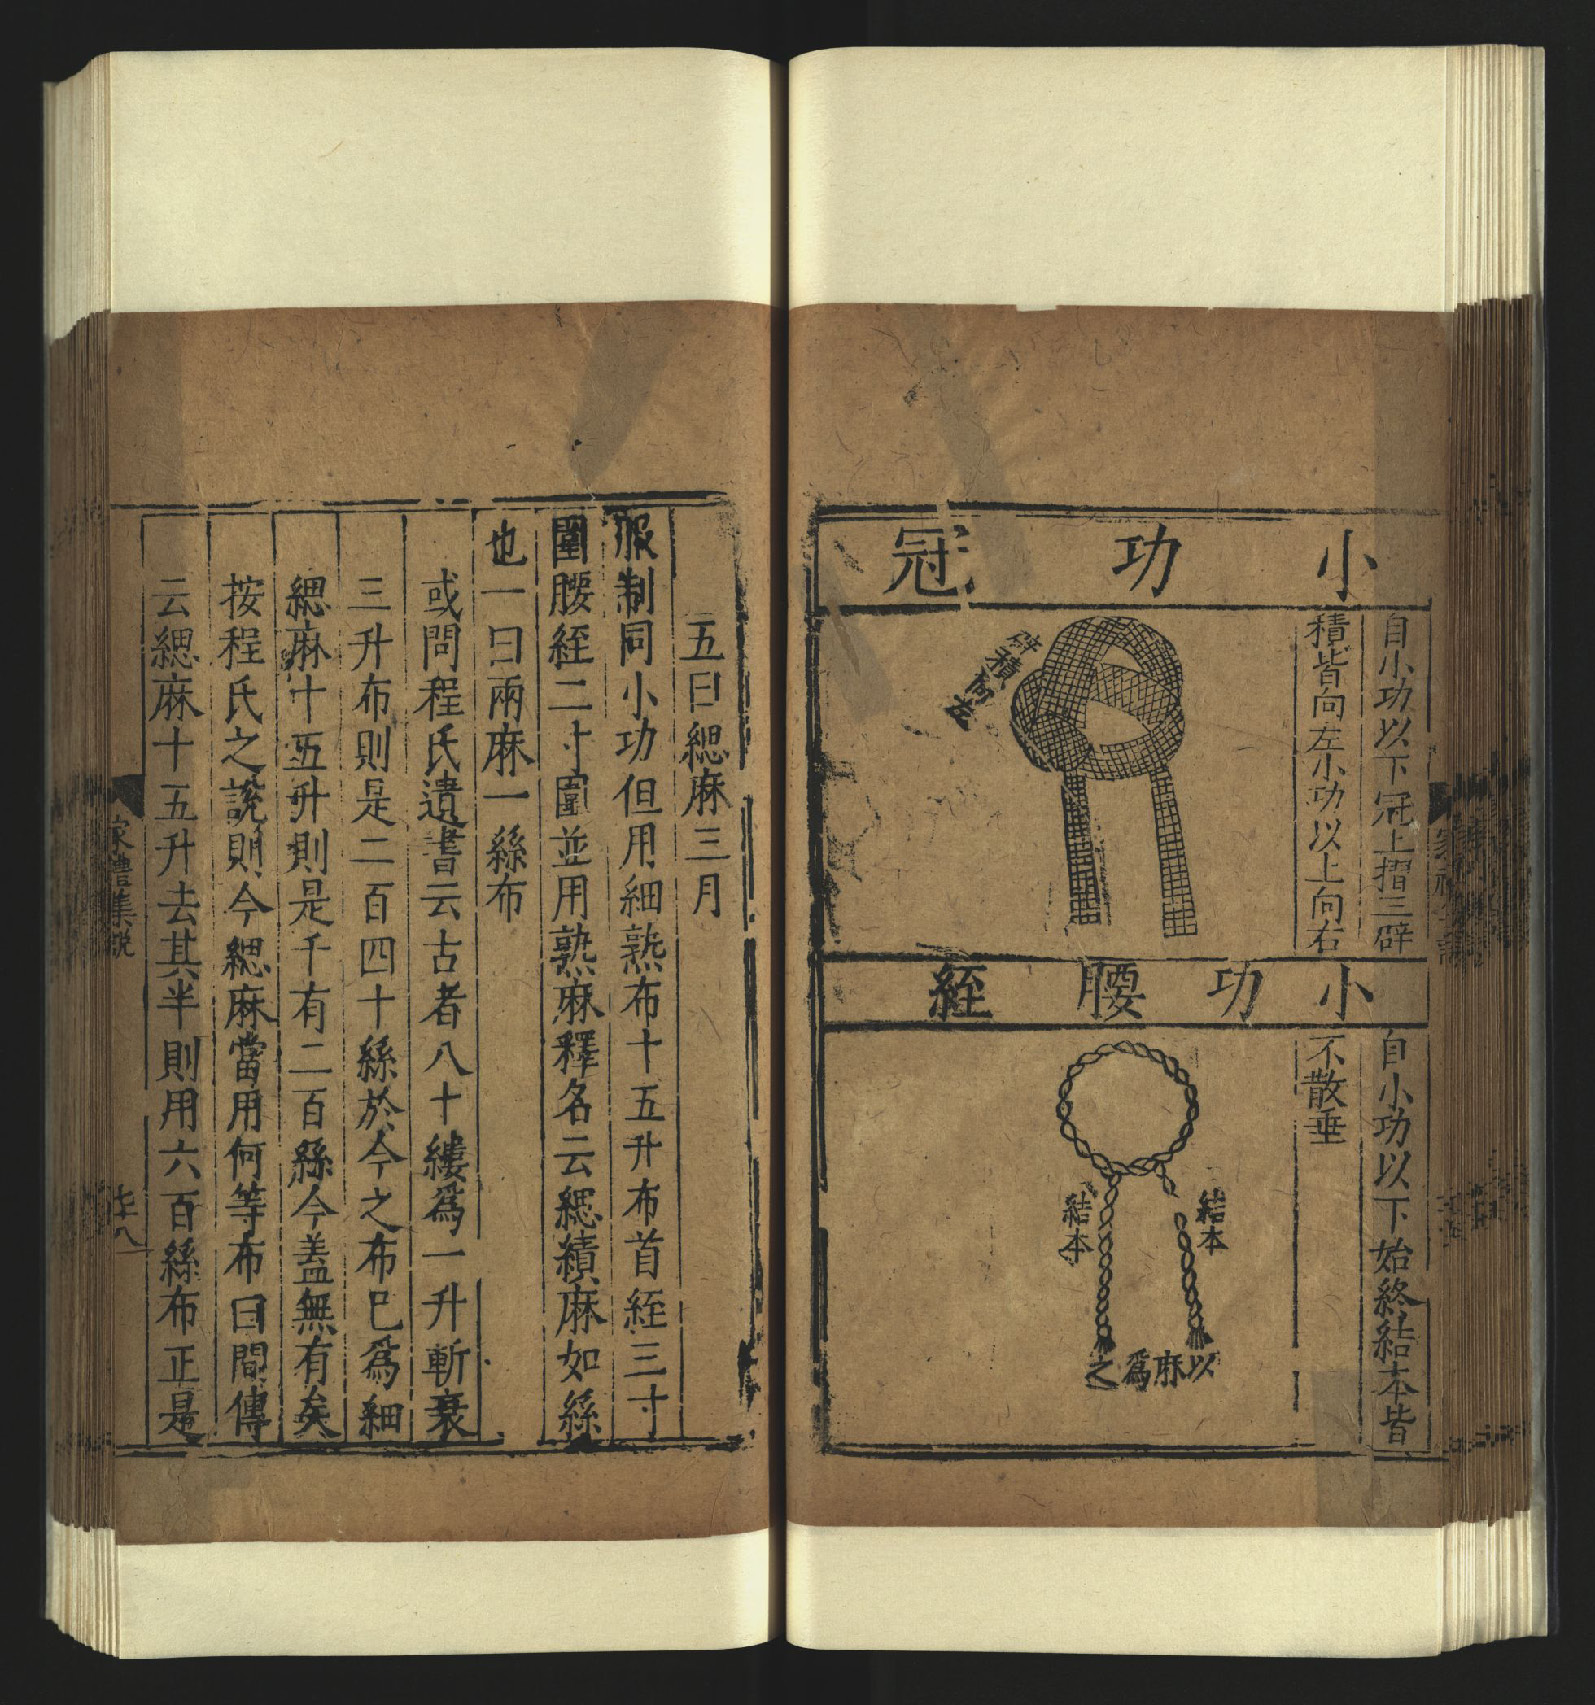 小功冠
自小功以下冠上摺三辟
積皆向左小功以上向右
辟積向左
小功腰絰
自小功以下始終結本皆
不散垂
結本
結本
以麻爲之
五曰緦麻三月
服制同小功但用細熟布十五升布首絰三寸
圍腰絰二寸圍並用熟麻釋名云緦績麻如絲
也一曰兩麻一絲布
或問程氏遺書云古者八十縷爲一升斬衰
三升布則是二百四十絲於今之布已爲細
緦麻十五升則是千有二百絲今蓋無有矣
按程氏之說則今緦麻當用何等布曰間傳
云緦麻十五升去其半則用六百絲布正是
家禮集說